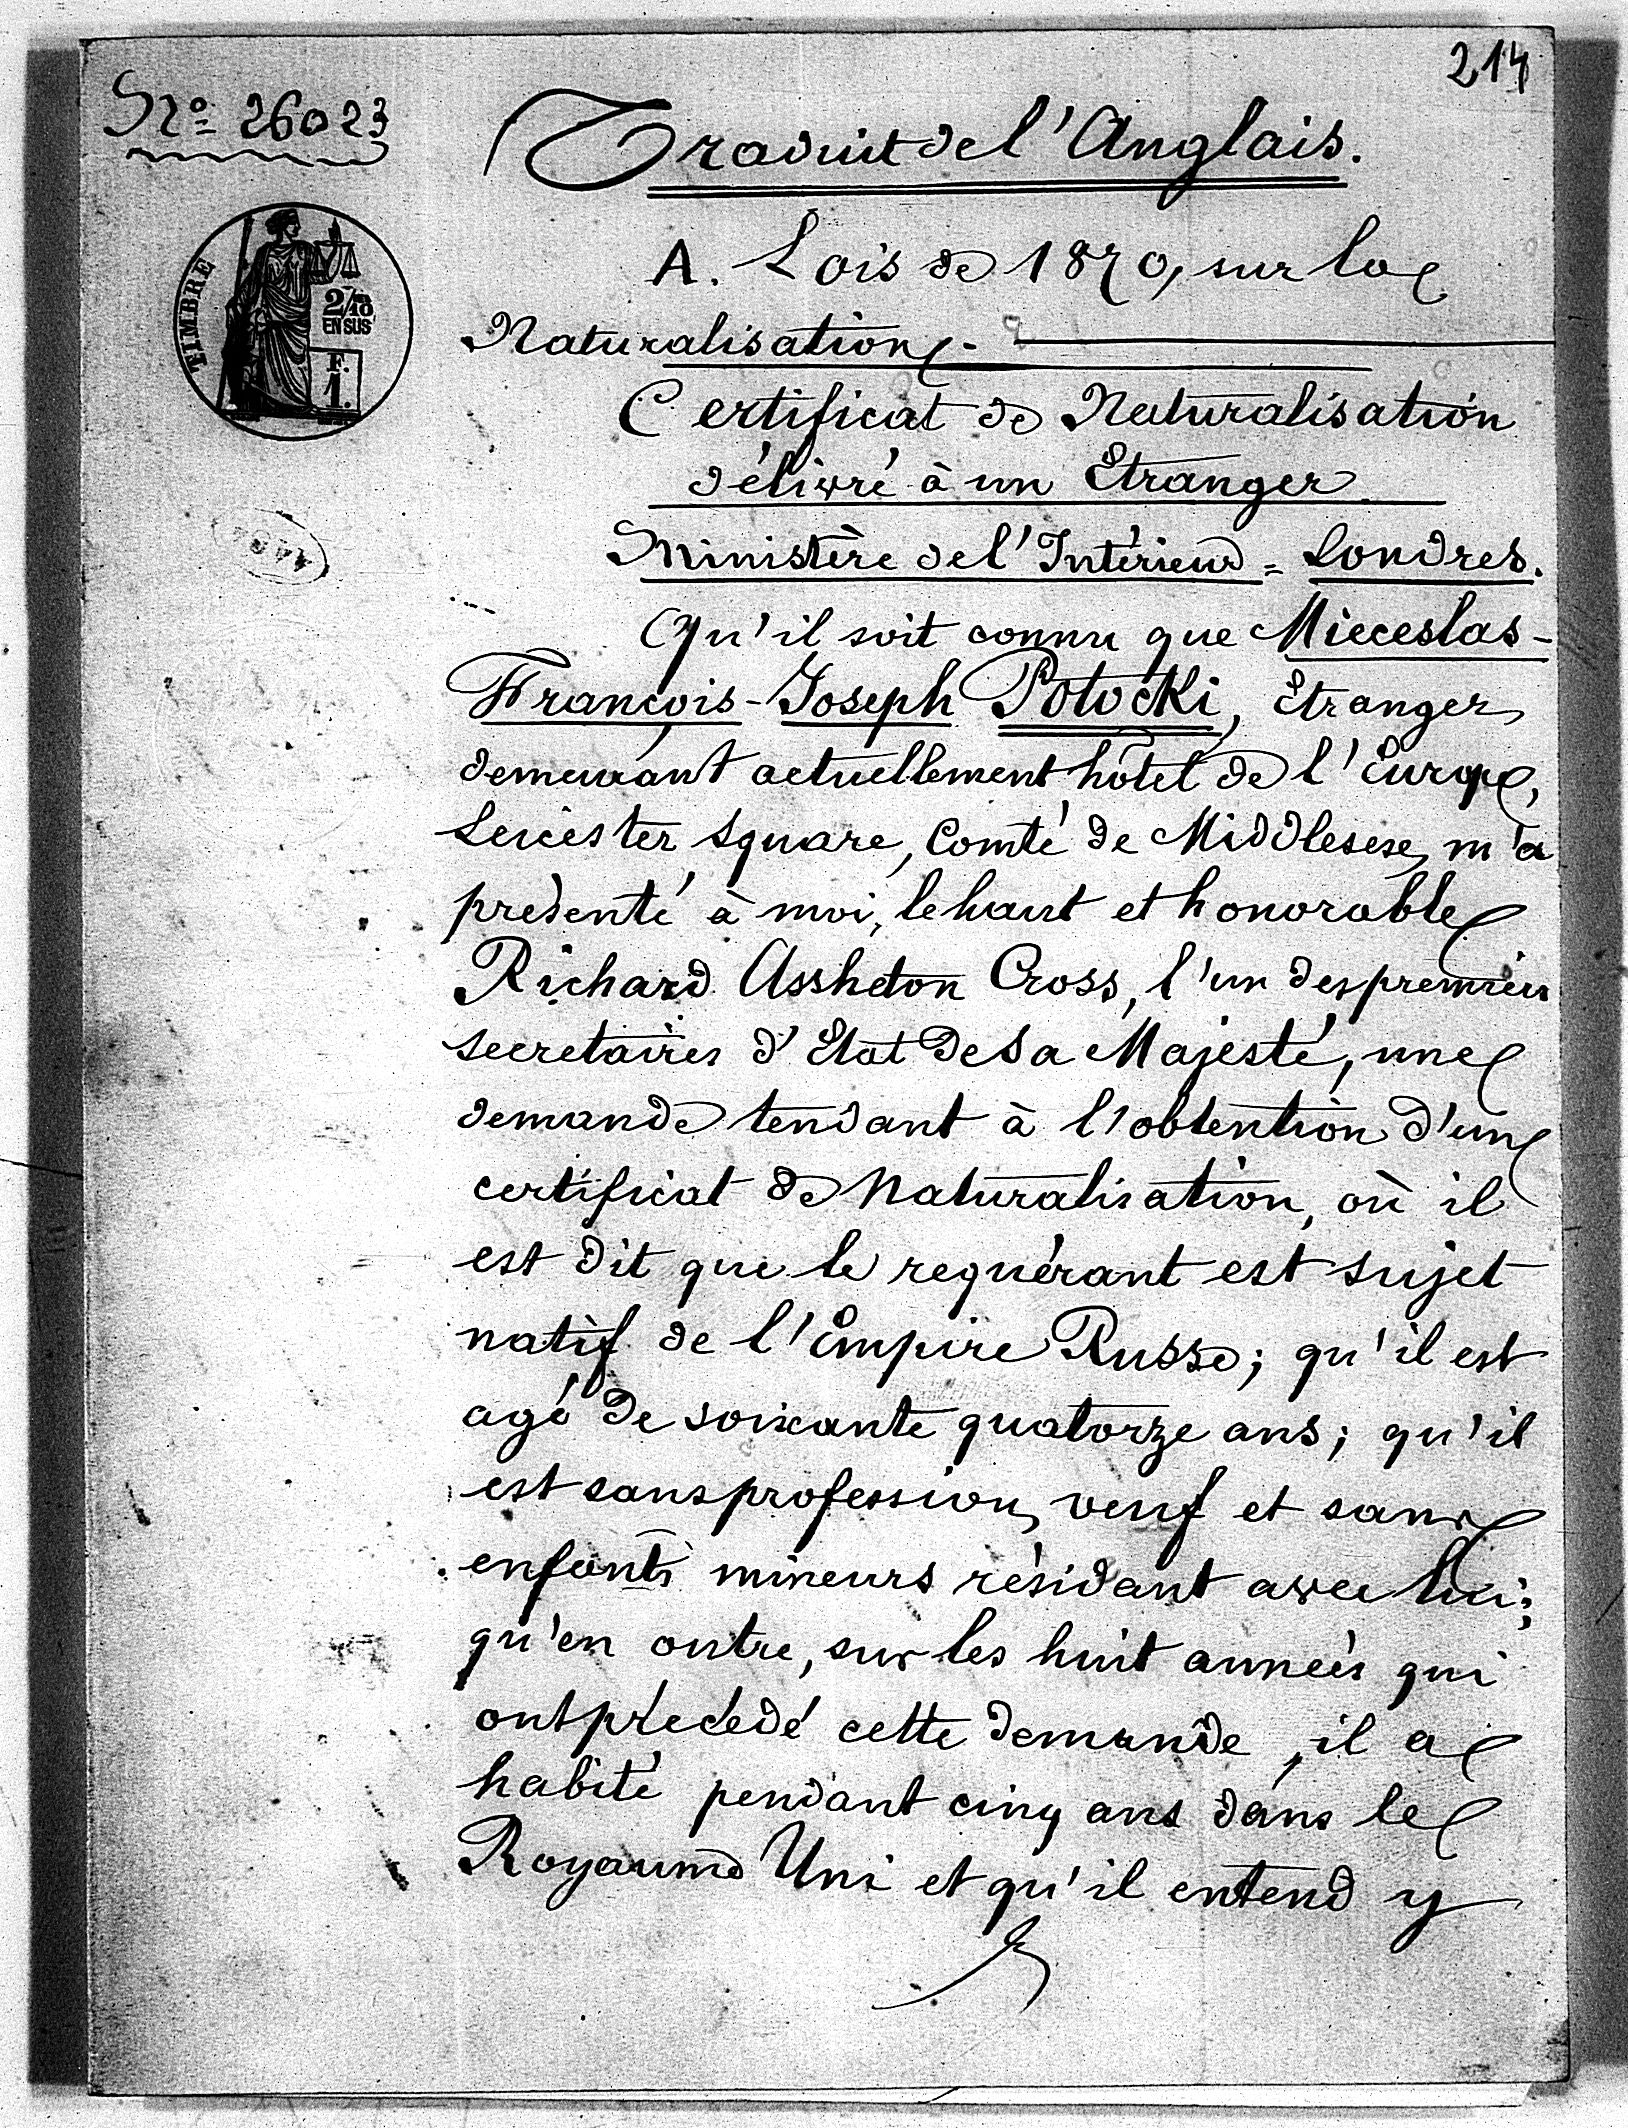 214
No 26023
Traduit de l'Anglais.
TIMBRE
2/10
EN SUS
F.
1.
A. Lois de 1870, sur la
Naturalisation.
Certificat de Naturalisation
délivré à un Etranger.
Ministère de l'Intérieur = Londres.
Qu'il soit connu que Mieceslas-
François-Joseph Potocki, Etranger
demeurant actuellement hôtel de l'Europe,
Leicester Square, Comté de Middlesex, m'a
présenté à moi, le haut et honorable
Richard Assheton Cross, l'un des premiers
secrétaires d'Etat de Sa Majesté, une
demande tendant à l'obtention d'un
certificat de Naturalisation, où il
est dit que le requérant est sujet
natif de l'Empire Russe; qu'il est
agé de soixante quatorze ans; qu'il
est sans profession, veuf et sans
enfants mineurs résidant avec lui;
qu'en outre, sur les huit années qui
ont précédé cette demande, il a
habité pendant cinq ans dans le
Royaume Uni et qu'il entend y